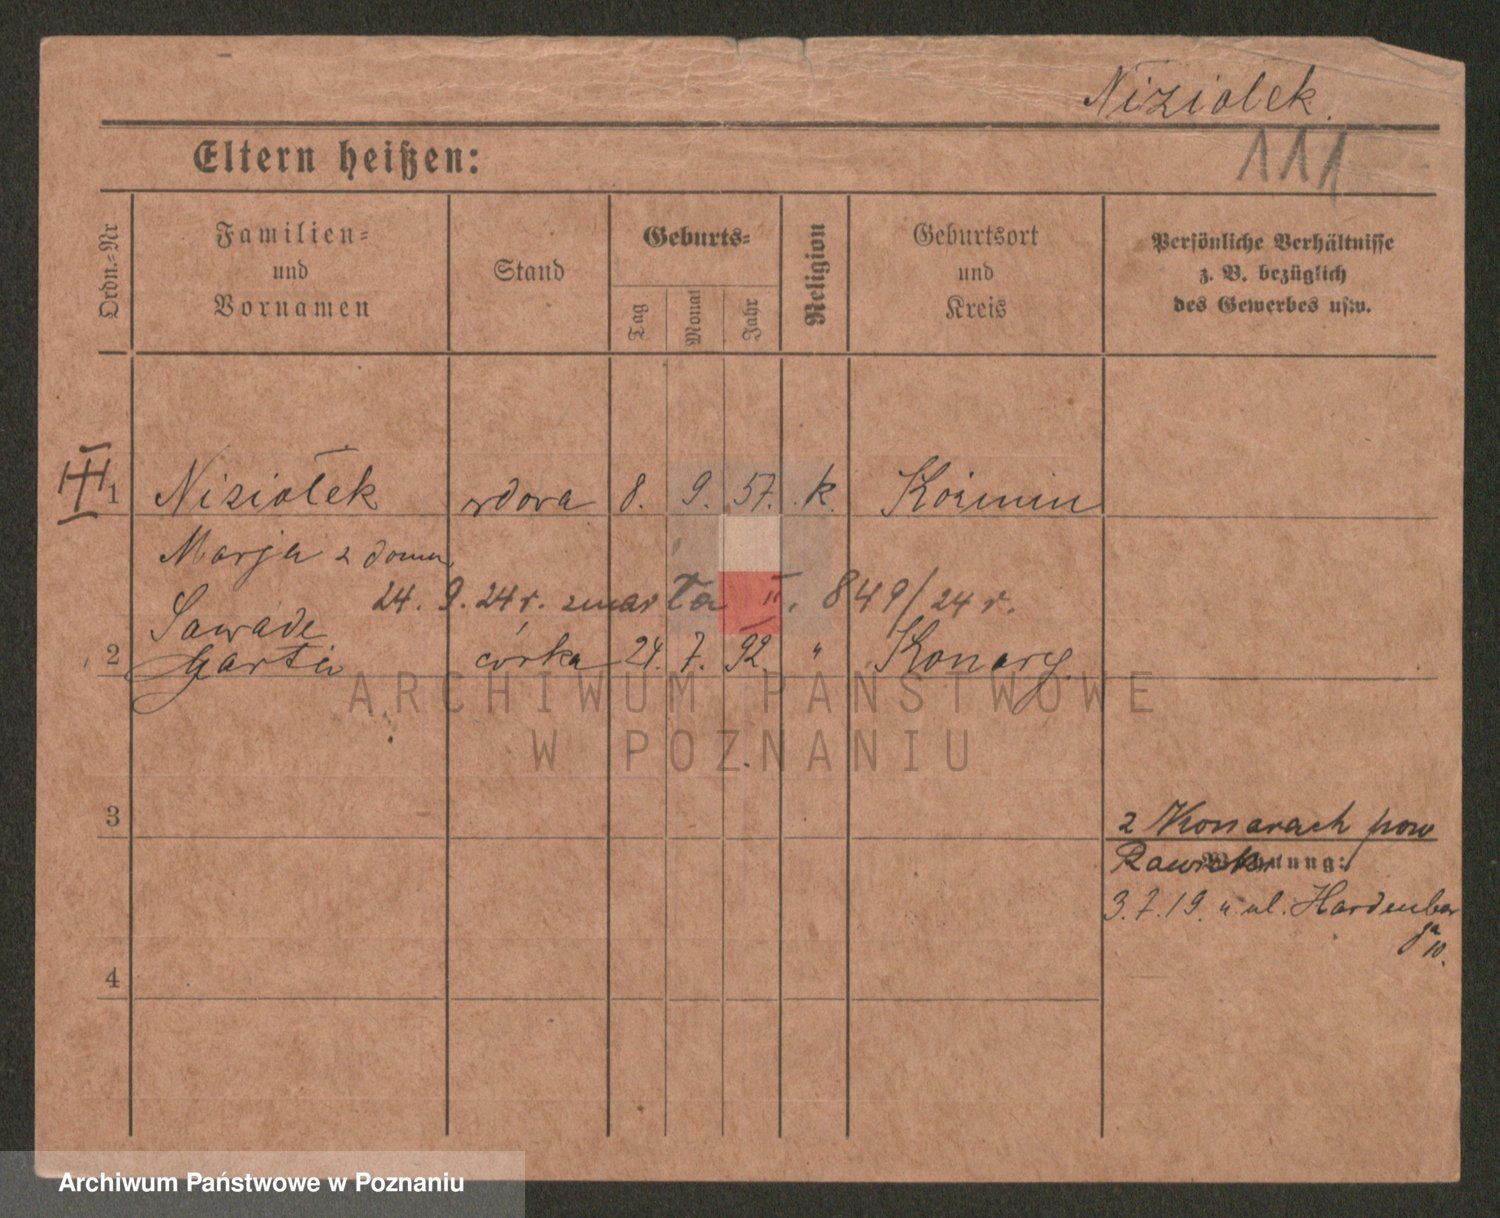 Niziołek.
111
Eltern heißen:
Ordn.-Nr
Familien-
und
Vornamen
Stand
Geburts-
Tag
Monat
Jahr
Religion
Geburtsort
und
Kreis
Persönliche Verhältnisse
z. B. bezüglich
des Gewerbes usw.
1 Niziołek wdowa 8. 9. 57. k. Koźmin
Marja z domu
24. 9. 24 r. zmarła II. 849/24 r.
Sawade
2 córka 24. 7. 92. " Konary
ARCHIWUM PAŃSTWOWE
W POZNANIU
3
z Konarach pow
Rawicz
Wohnung:
3.7.19. u. ul. Hardenber
ga 10.
4
Archiwum Państwowe w Poznaniu